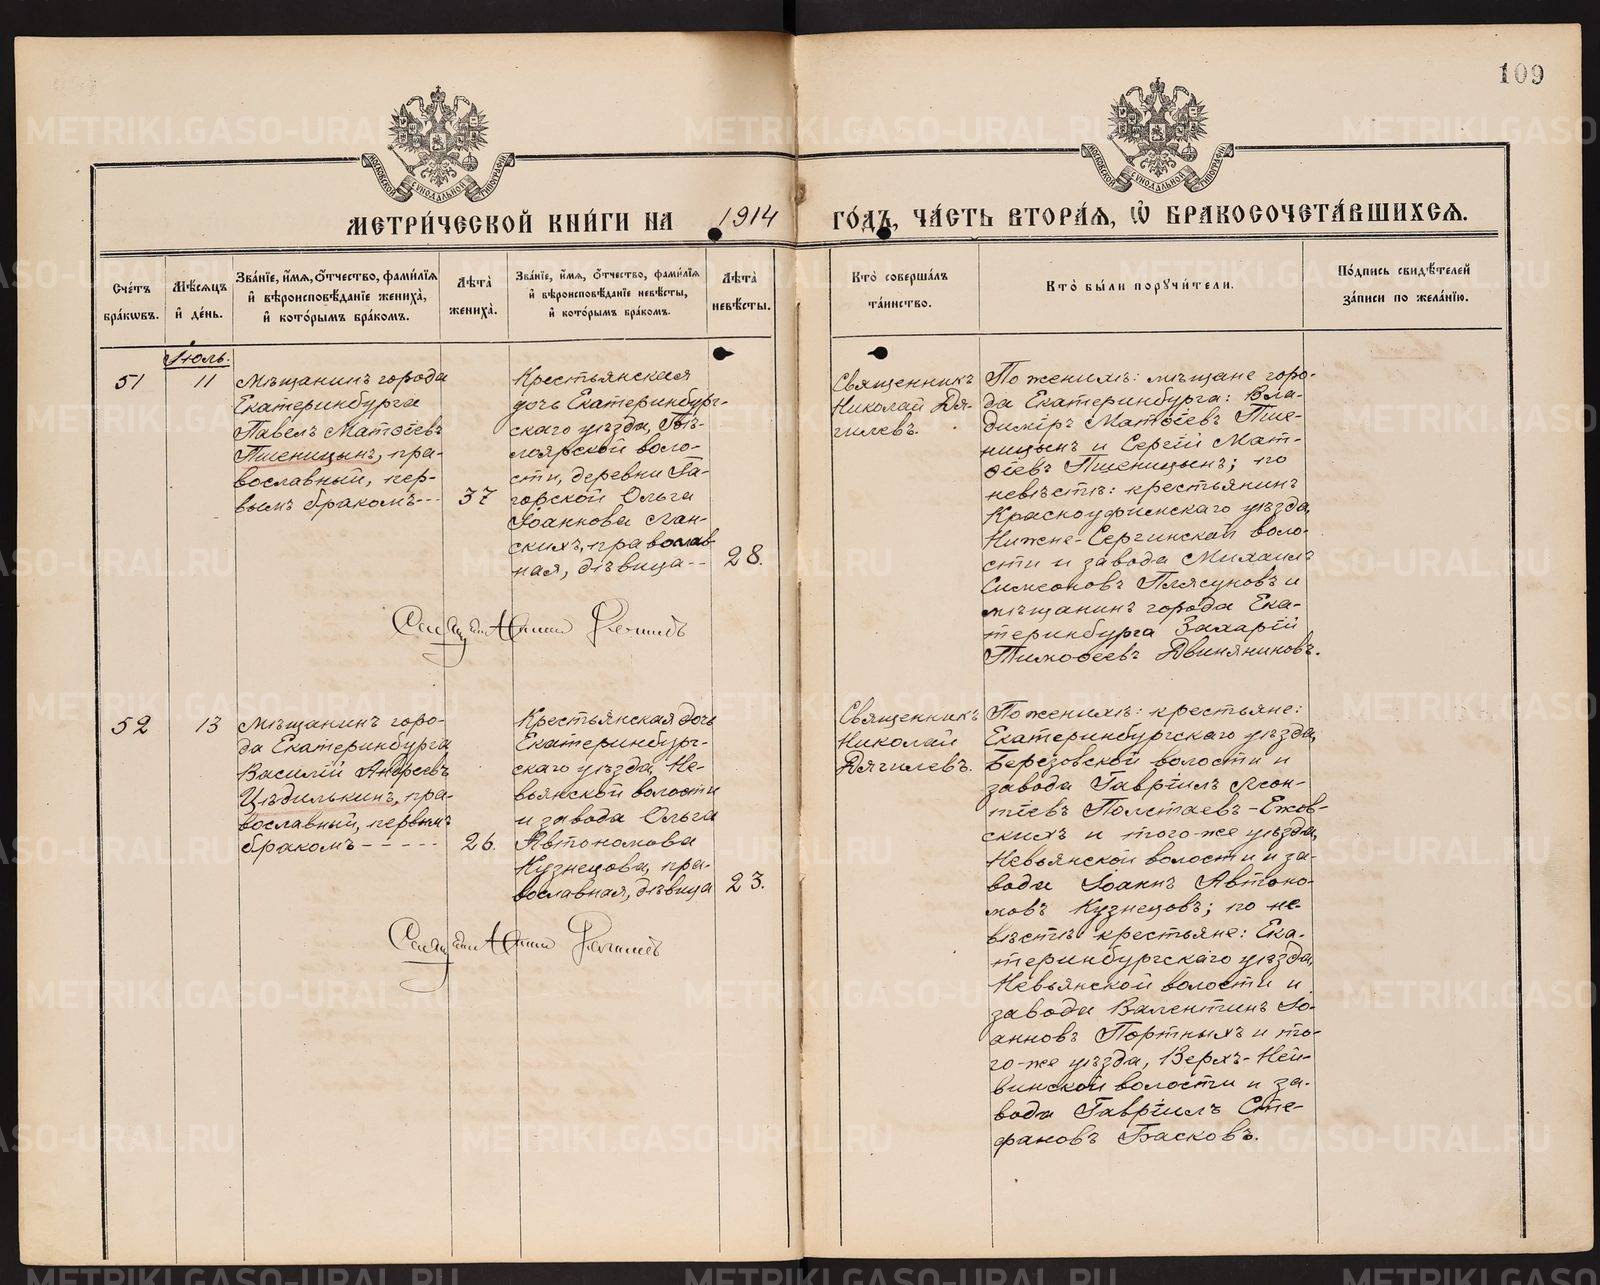 109
МЕТРИ́ЧЕСКОЙ КНИ́ГИ НА 1914 ГО́ДЪ, ЧА́СТЬ ВТОРА́Я, Ѡ БРАКОСОЧЕТА́ВШИХСЯ.
МОСКОВСКОЙ СѴНОДАЛЬНОЙ ТИПОГРАФІИ
МОСКОВСКОЙ СѴНОДАЛЬНОЙ ТИПОГРАФІИ
Сче́тъ
бра́кѡвъ.
Мѣ́сяцъ
и҆ де́нь.
Зва́нїе, и҆́мя, ѻ҆́тчество, фами́лїя
и҆ вѣроисповѣ́данїе жениха̀,
и҆ кото́рымъ бра́комъ.
Лѣ́та
жениха̀.
Зва́нїе, и҆́мя, ѻ҆́тчество, фами́лїя
и҆ вѣроисповѣ́данїе невѣ́сты,
и҆ кото́рымъ бра́комъ.
Лѣ́та
невѣ́сты.
Кто̀ соверша́лъ
та́инство.
Кто̀ бы́ли порꙋчи́тели.
По́дпись свидѣ́телей
за́писи по жела́нїю.
Іюль.
51
11
Мѣщанинъ города
Екатеринбурга
Павелъ Матѳіевъ
Пшеницынъ, пра-
вославный, пер-
вымъ бракомъ---
37
Крестьянская
дочь Екатеринбург-
скаго уѣзда, Бѣ-
лоярской воло-
сти, деревни Га-
горской Ольга
Іоаннова Лан-
скихъ, православ
ная, дѣвица--
28.
Священникъ
Николай Дя-
гилевъ.
По женихѣ: мѣщане горо-
да Екатеринбурга: Вла-
димiръ Матѳіевъ Пше-
ницынъ и Сергій Мат-
ѳіевъ Пшеницынъ; по
невѣстѣ: крестьянинъ
Красноуфимскаго уѣзда,
Нижне-Сергинской воло-
сти и завода Михаилъ
Симеоновъ Плясуновъ и
мѣщанинъ города Ека-
теринбурга Захарій
Тимоѳеевъ Двиняниновъ.
52
13
Мѣщанинъ горо-
да Екатеринбурга
Василій Андреевъ
Цѣдилькинъ, пра-
вославный, первымъ
бракомъ-----
26.
Крестьянская дочь
Екатеринбург-
скаго уѣзда, Не-
вьянской волости
и завода Ольга
Автономова
Кузнецова, пра-
вославная, дѣвица
23.
Священникъ
Николай
Дягилевъ.
По женихѣ: крестьяне:
Екатеринбургскаго уѣзда,
Березовской волости и
завода Гавріилъ Леон-
тіевъ Полстаевъ-Ежов-
скихъ и того-же уѣзда,
Невьянской волости и за-
вода Іоаннъ Автоно-
мовъ Кузнецовъ; по не-
вѣстѣ крестьяне: Ека-
теринбургскаго уѣзда,
Невьянской волости и
завода Валентинъ Іо-
анновъ Портныхъ и то-
го-же уѣзда, Верхъ-Ней-
винской волости и за-
вода Гавріилъ Сте-
фановъ Басковъ.